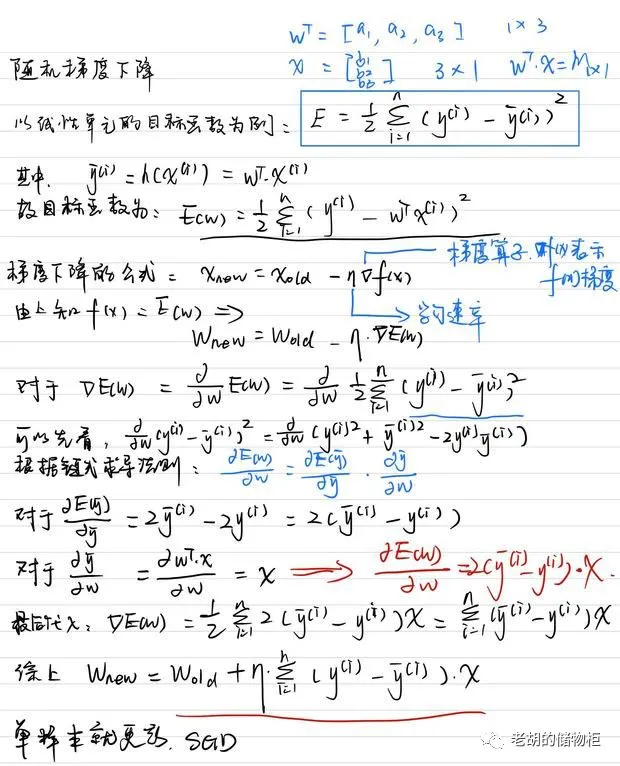 wᵀ = [a₁, a₂, a₃] 1×3
随机梯度下降 x = [b₁ b₂ b₃] 3×1 wᵀ·x = M₁ₓ₁
以线性单元的目标函数为例: E = 1/2 Σᵢ₌₁ⁿ (y⁽ⁱ⁾ - ȳ⁽ⁱ⁾)²
其中, ȳ⁽ⁱ⁾ = h(x⁽ⁱ⁾) = wᵀ·x⁽ⁱ⁾
故目标函数为: E(w) = 1/2 Σᵢ₌₁ⁿ (y⁽ⁱ⁾ - wᵀx⁽ⁱ⁾)²
梯度下降的公式: x_new = x_old - η∇f(x) → 梯度算子. ∇f(x)表示
f的梯度
由上知 f(x) = E(w) ⇒ → 学习速率
w_new = w_old - η·∇E(w)
对于 ∇E(w) = ∂/∂w E(w) = ∂/∂w 1/2 Σᵢ₌₁ⁿ (y⁽ⁱ⁾ - ȳ⁽ⁱ⁾)²
可以先看, ∂/∂w (y⁽ⁱ⁾ - ȳ⁽ⁱ⁾)² = ∂/∂w (y⁽ⁱ⁾² + ȳ⁽ⁱ⁾² - 2y⁽ⁱ⁾ȳ⁽ⁱ⁾)
根据链式求导法则: ∂E(w)/∂w = ∂E(ȳ)/∂ȳ · ∂ȳ/∂w
对于 ∂E(ȳ)/∂ȳ = 2ȳ⁽ⁱ⁾ - 2y⁽ⁱ⁾ = 2(ȳ⁽ⁱ⁾ - y⁽ⁱ⁾)
对于 ∂ȳ/∂w = ∂wᵀ·x/∂w = x ⇒ ∂E(w)/∂w = 2(ȳ⁽ⁱ⁾ - y⁽ⁱ⁾)·x.
最后代入: ∇E(w) = 1/2 Σᵢ₌₁ⁿ 2(ȳ⁽ⁱ⁾ - y⁽ⁱ⁾)x = Σᵢ₌₁ⁿ (ȳ⁽ⁱ⁾ - y⁽ⁱ⁾)x
综上 w_new = w_old + η·Σᵢ₌₁ⁿ (y⁽ⁱ⁾ - ȳ⁽ⁱ⁾)·x
单样本就更新. SGD
老胡的储物柜